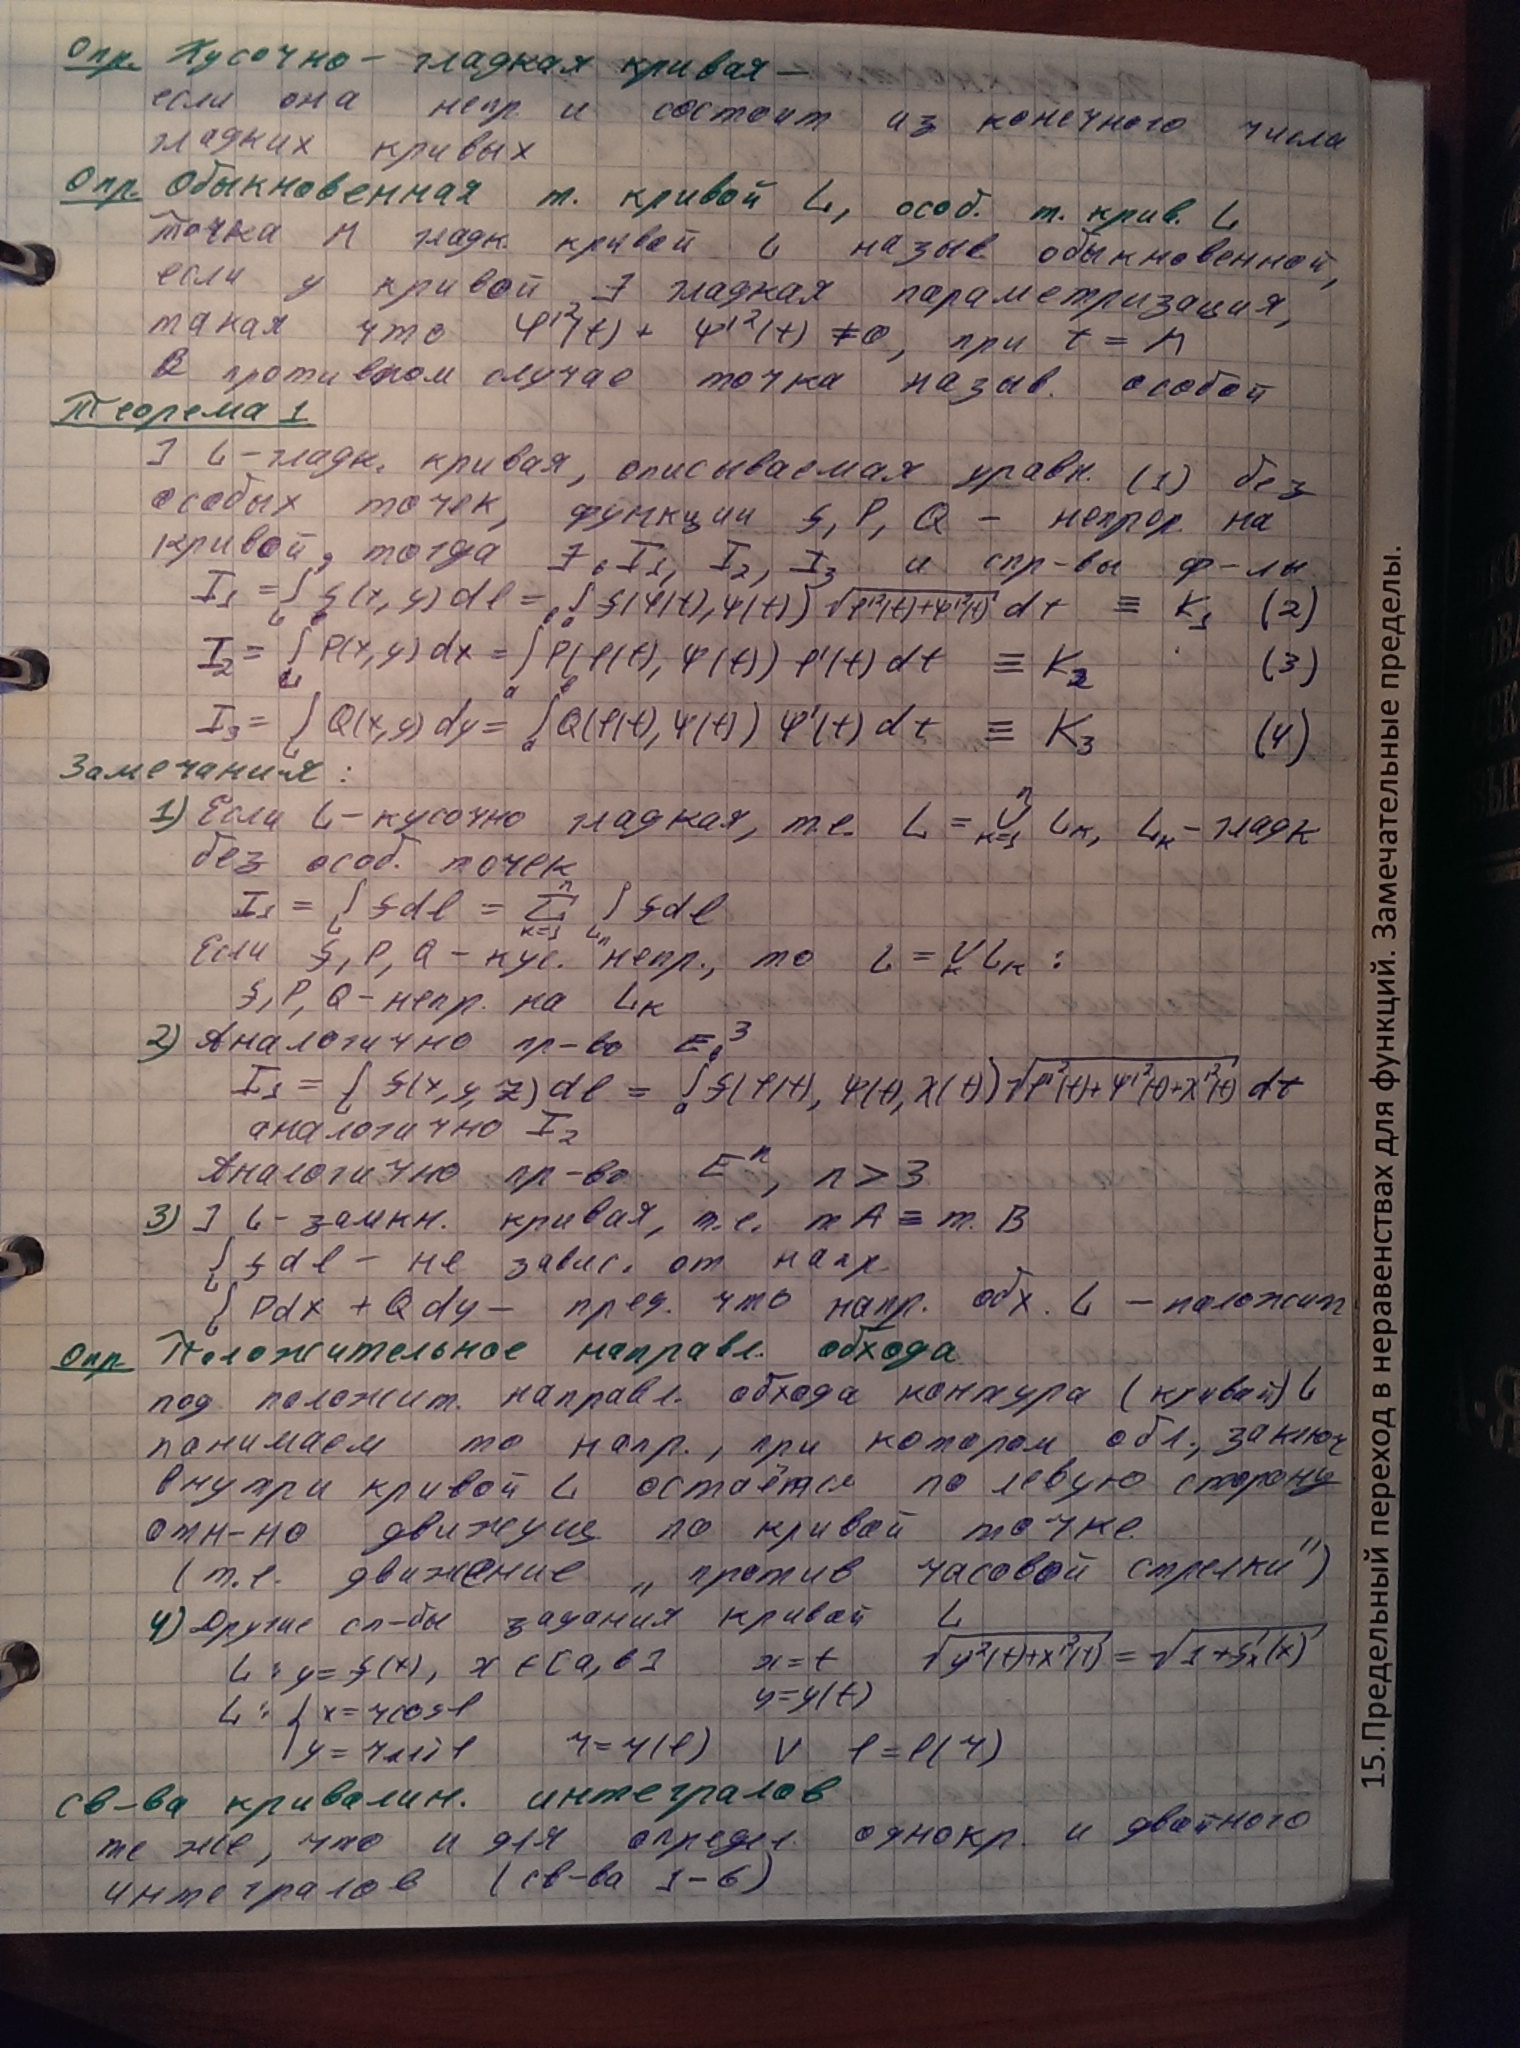 Опр. Кусочно-гладкая кривая –
если она непр и состоит из конечного числа
гладких кривых
Опр. Обыкновенная т. кривой L, особ. т. крив. L
Точка M гладк. кривой L назыв обыкновенной,
если у кривой ∃ гладкая параметризация,
такая что φ'²(t) + ψ'²(t) ≠ 0, при t = M
В противном случае точка назыв. особой
Теорема 1
] L – гладк. кривая, описываемая уравн. (1) без
особых точек, функции f, P, Q – непрер. на
кривой, тогда ∃ I₁, I₂, I₃ и спр-вы ф-лы
I₁ = ∫_L f(x, y) dl = ∫_a^b f(φ(t), ψ(t)) √(φ'²(t)+ψ'²(t)) dt ≡ K₁ (2)
I₂ = ∫_L P(x, y) dx = ∫_a^b P(φ(t), ψ(t)) φ'(t) dt ≡ K₂ (3)
I₃ = ∫_L Q(x, y) dy = ∫_a^b Q(φ(t), ψ(t)) ψ'(t) dt ≡ K₃ (4)
Замечания:
1) Если L – кусочно гладкая, т.е. L = ∪_{k=1}^n L_k, L_k – гладк
без особ. точек
I₁ = ∫_L f dl = Σ_{k=1}^n ∫_{L_n} f dl
Если f, P, Q – кус. непр., то L = ∪_k L_k :
f, P, Q – непр. на L_k
2) Аналогично пр-во E³
I₁ = ∫_L f(x, y, z) dl = ∫_a^b f(φ(t), ψ(t), χ(t)) √(φ'²(t)+ψ'²(t)+χ'²(t)) dt
аналогично I₂
Аналогично пр-во Eⁿ, n > 3
3) ] L – замкн. кривая, т.е. т A ≡ т. B
∫_L f dl – не завис. от напр.
∫_L Pdx + Qdy – пред. что напр. обх. L – положит
Опр Положительное направл. обхода
под положит. направл. обхода контура (кривой) L
понимаем то напр., при котором обл., заключ
внутри кривой L остаётся по левую сторону
отн-но движущ по кривой точке.
(т.е. движение „против часовой стрелки")
4) Другие сп-бы задания кривой L
L : y = f(x), x ∈ [a, b] x = t √(y'²(t)+x'²(t)) = √(1+f'ₓ²(x))
L : { x = r cos φ y = y(t)
y = r sin φ r = r(φ) V φ = φ(r)
св-ва криволин. интегралов
те же, что и для определ. однокр. и двойного
интегралов (св-ва 1-6)
15.Предельный переход в неравенствах для функций. Замечательные пределы.